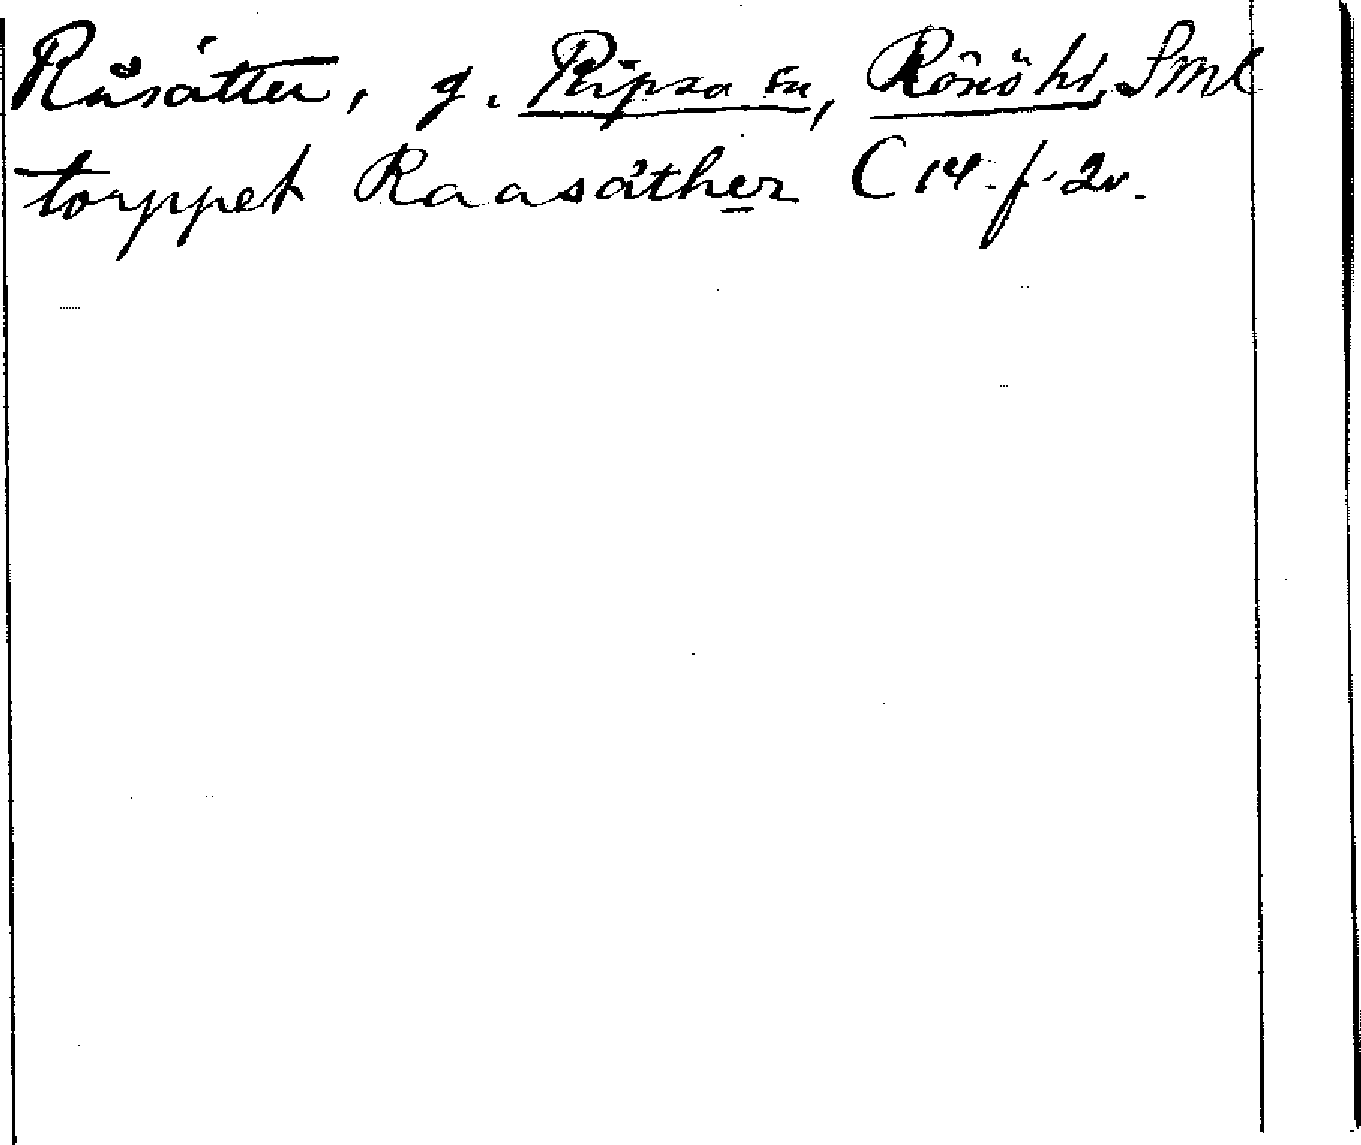 Råsätter, g. Ripsa sn, Rönö hd, Sml
torppet Raasäther C 14 f. 2v.